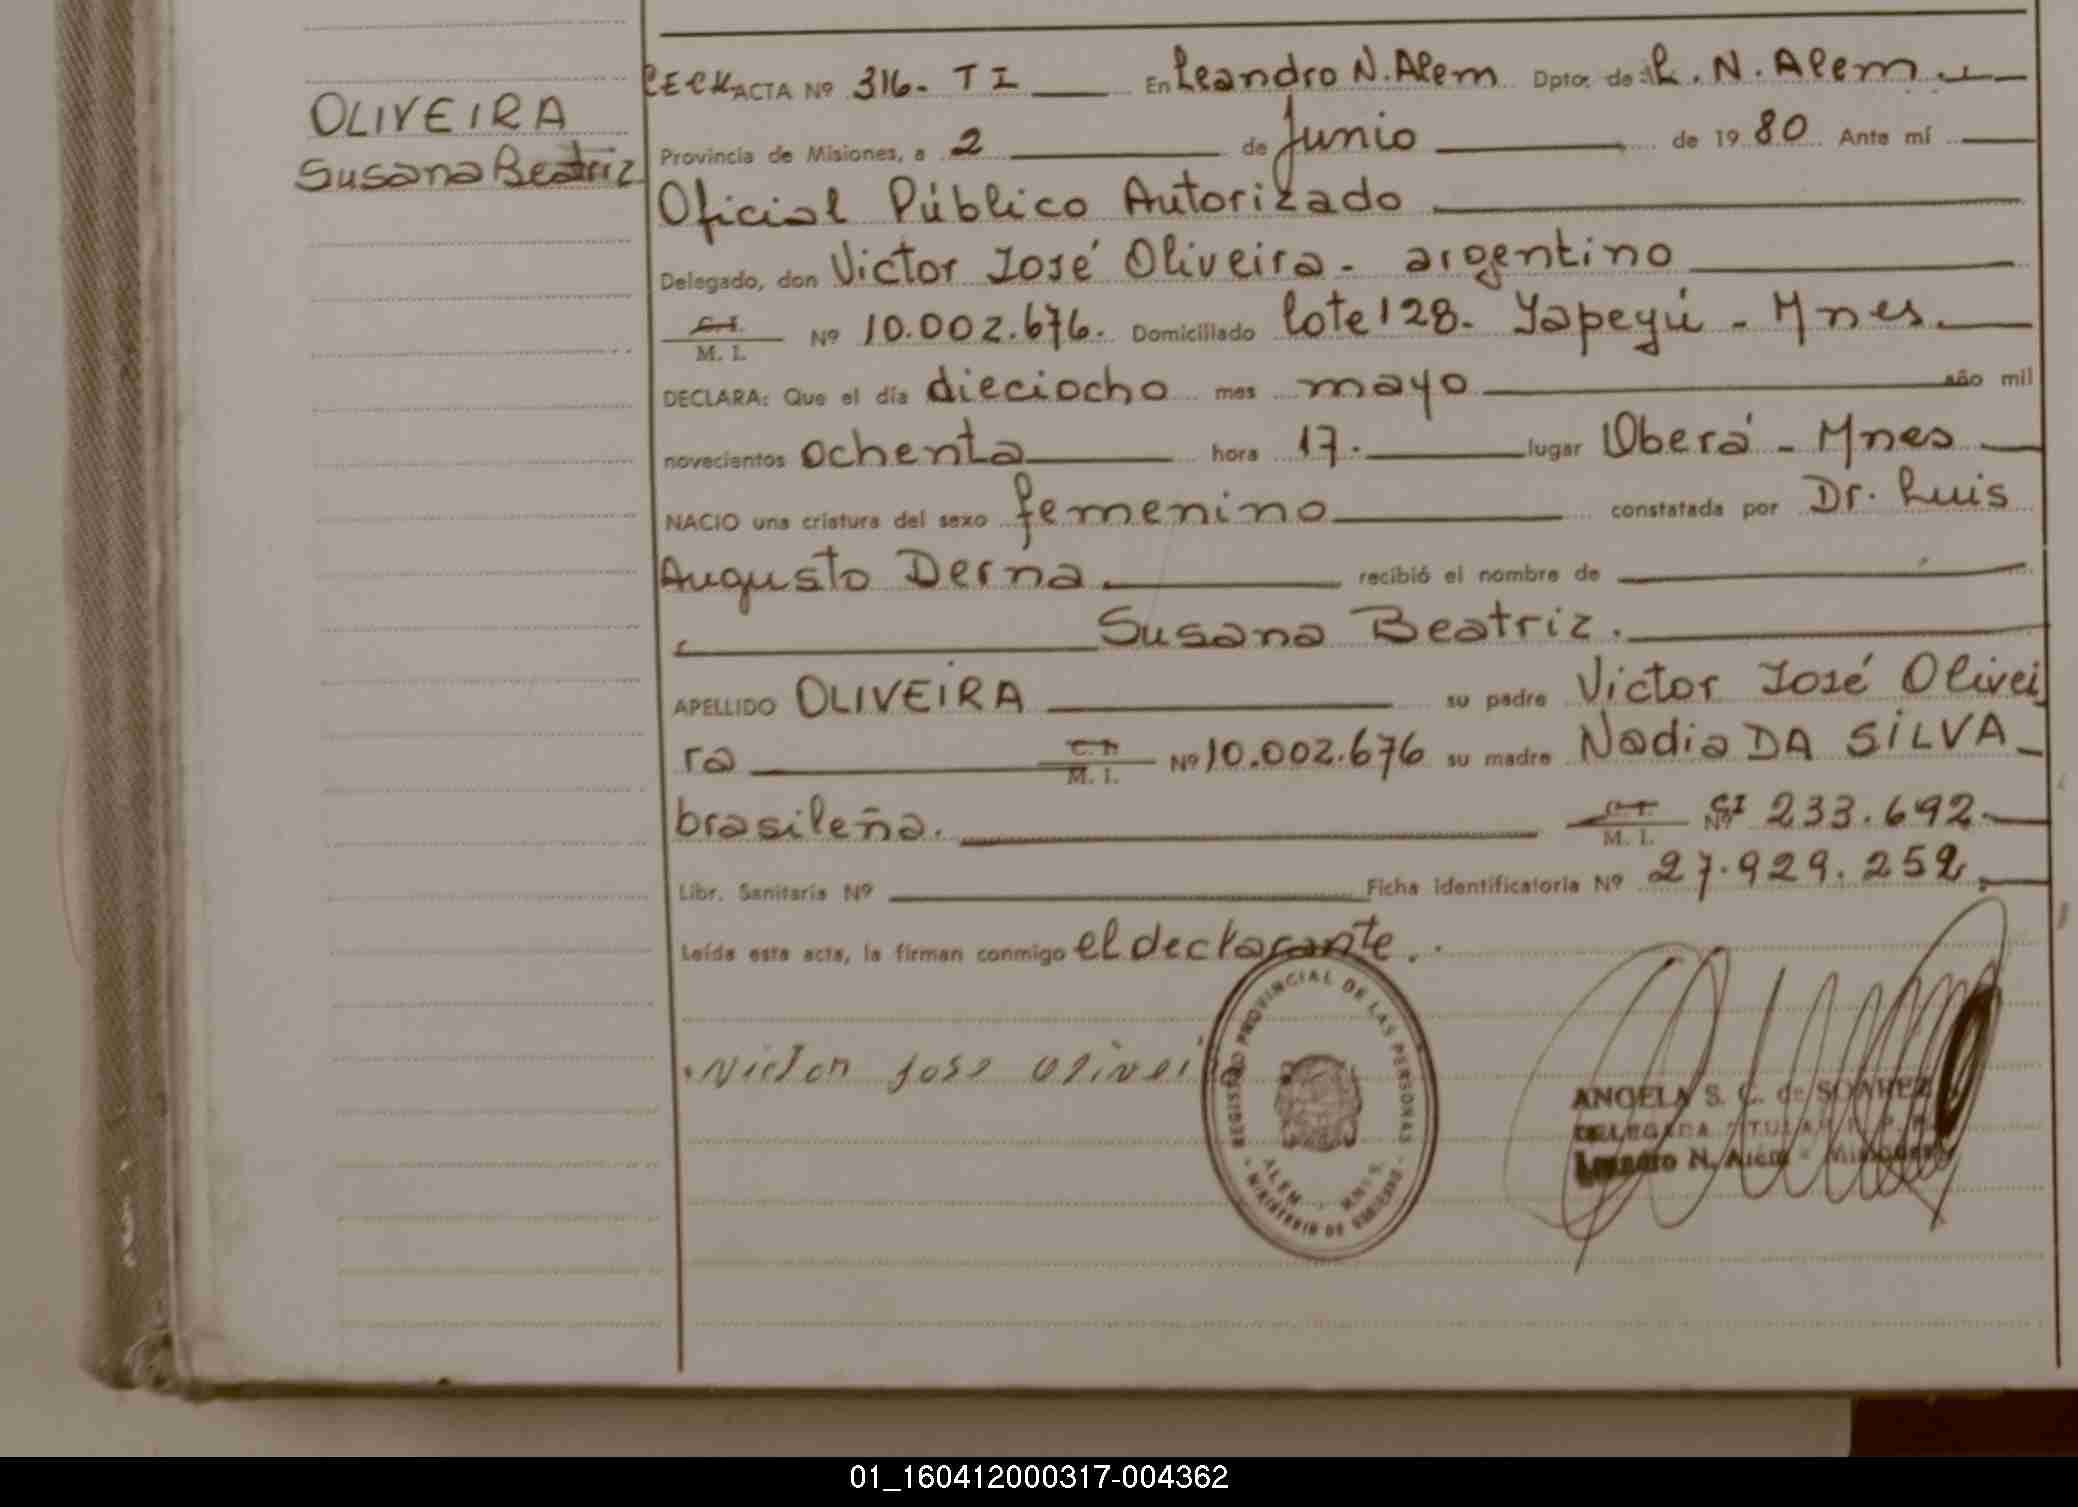 OLIVEIRA
Susana Beatriz
ACTA Nº 316. T I En Leandro N. Alem Dpto. de L. N. Alem
Provincia de Misiones, a 2 de Junio de 1980 Ante mí
Oficial Público Autorizado
Delegado, don Victor José Oliveira - argentino
C. I.
M. I. Nº 10.002.676. Domiciliado lote 128. Yapeyú - Mnes.
DECLARA: Que el día dieciocho mes mayo año mil
novecientos ochenta hora 17. lugar Oberá - Mnes
NACIO una criatura del sexo femenino constatada por Dr. Luis
Augusto Derna recibió el nombre de
Susana Beatriz.
APELLIDO OLIVEIRA su padre Victor José Olivei
ra C. I. M. I. Nº 10.002.676 su madre Nadia DA SILVA
brasileña. C. I. M. I. Nº CI 233.692
Libr. Sanitaria Nº Ficha identificatoria Nº 27.929.252
Leída esta acta, la firman conmigo el declarante.
Victor Jose Olivei
REGISTRO PROVINCIAL DE LAS PERSONAS
ALEM - MNES.
MINISTERIO DE GOBIERNO
ANGELA S. C. de SOAREZ
DELEGADA TITULAR R. P. P.
Leandro N. Alem - Misiones
01_160412000317-004362